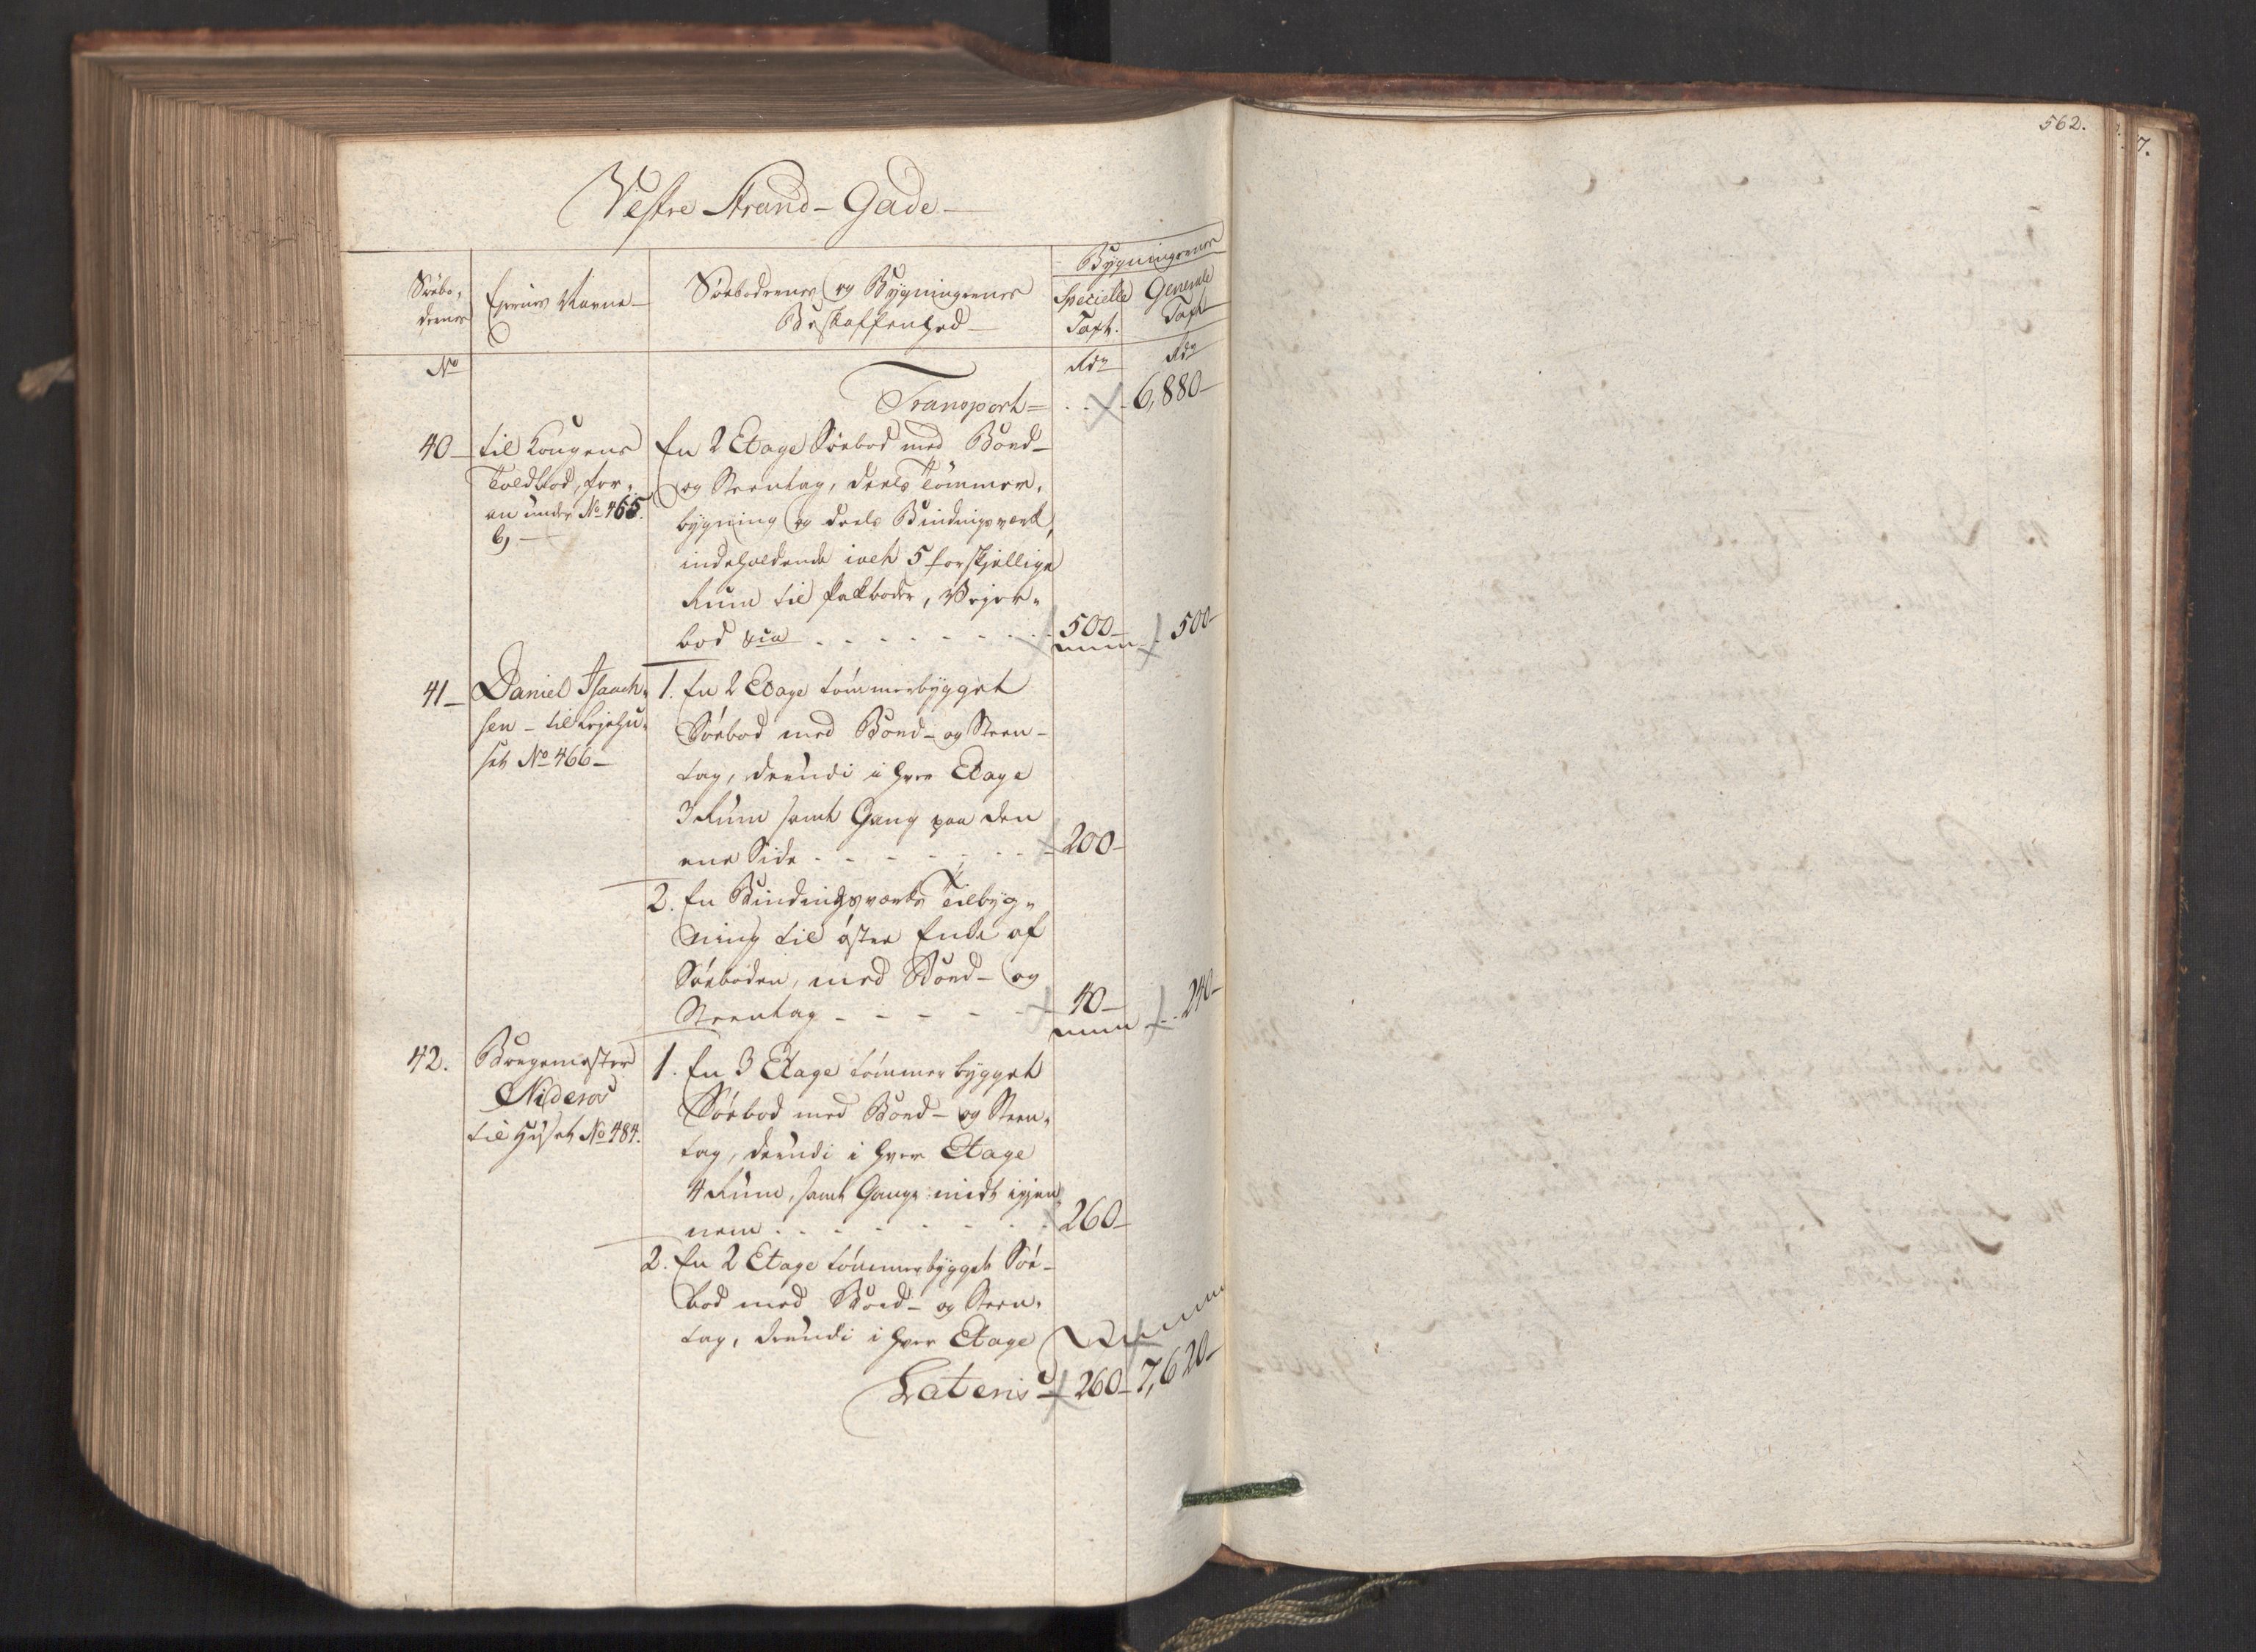 562.
7.
Vestre Strand-Gade
Söebo-
dernes
Ejernes Navne
Söebodernes og Bygningernes
Beskaffenhed
Bygningernes
Specielle
Taxt.
Generale
Taxt
No
Rdr
Rdr
Transport= . . - 6,880-
40- til Kongens
Toldbod, for-
an under No 465.
b,
En 2 Etage Söebod med Bord-
og Steentag, deels Tömmer-
bygning og deels Bindingsværk,
indeholdende ialt 5 forskjellige
Rum til Pakboder, Vejer-
bod &ca - - - 500- 500-
41- Daniel Isaach-
sen - til Lejehu-
set No 466-
1. En 2 Etage tömmerbygget
Söebod med Bord- og Steen-
tag, derudi i hver Etage
3 Rum samt Gang paa den
ene Side - - - 200-
2. En Bindingsværks Tilbyg-
ning til öster Ende af
Söeboden, med Bord- og
Steentag - - - 40- 240-
42. Borgemester
Niderøs
til Huset No 484.
1. En 3 Etage tömmerbygget
Söebod med Bord- og Steen-
tag, derudi i hver Etage
4 Rum, samt Gange midt igjen-
nem - - - 260-
2. En 2 Etage tömmerbygget Söe-
bod med Bord- og Steen-
tag, derudi i hver Etage
Lateris 260- 7,620-